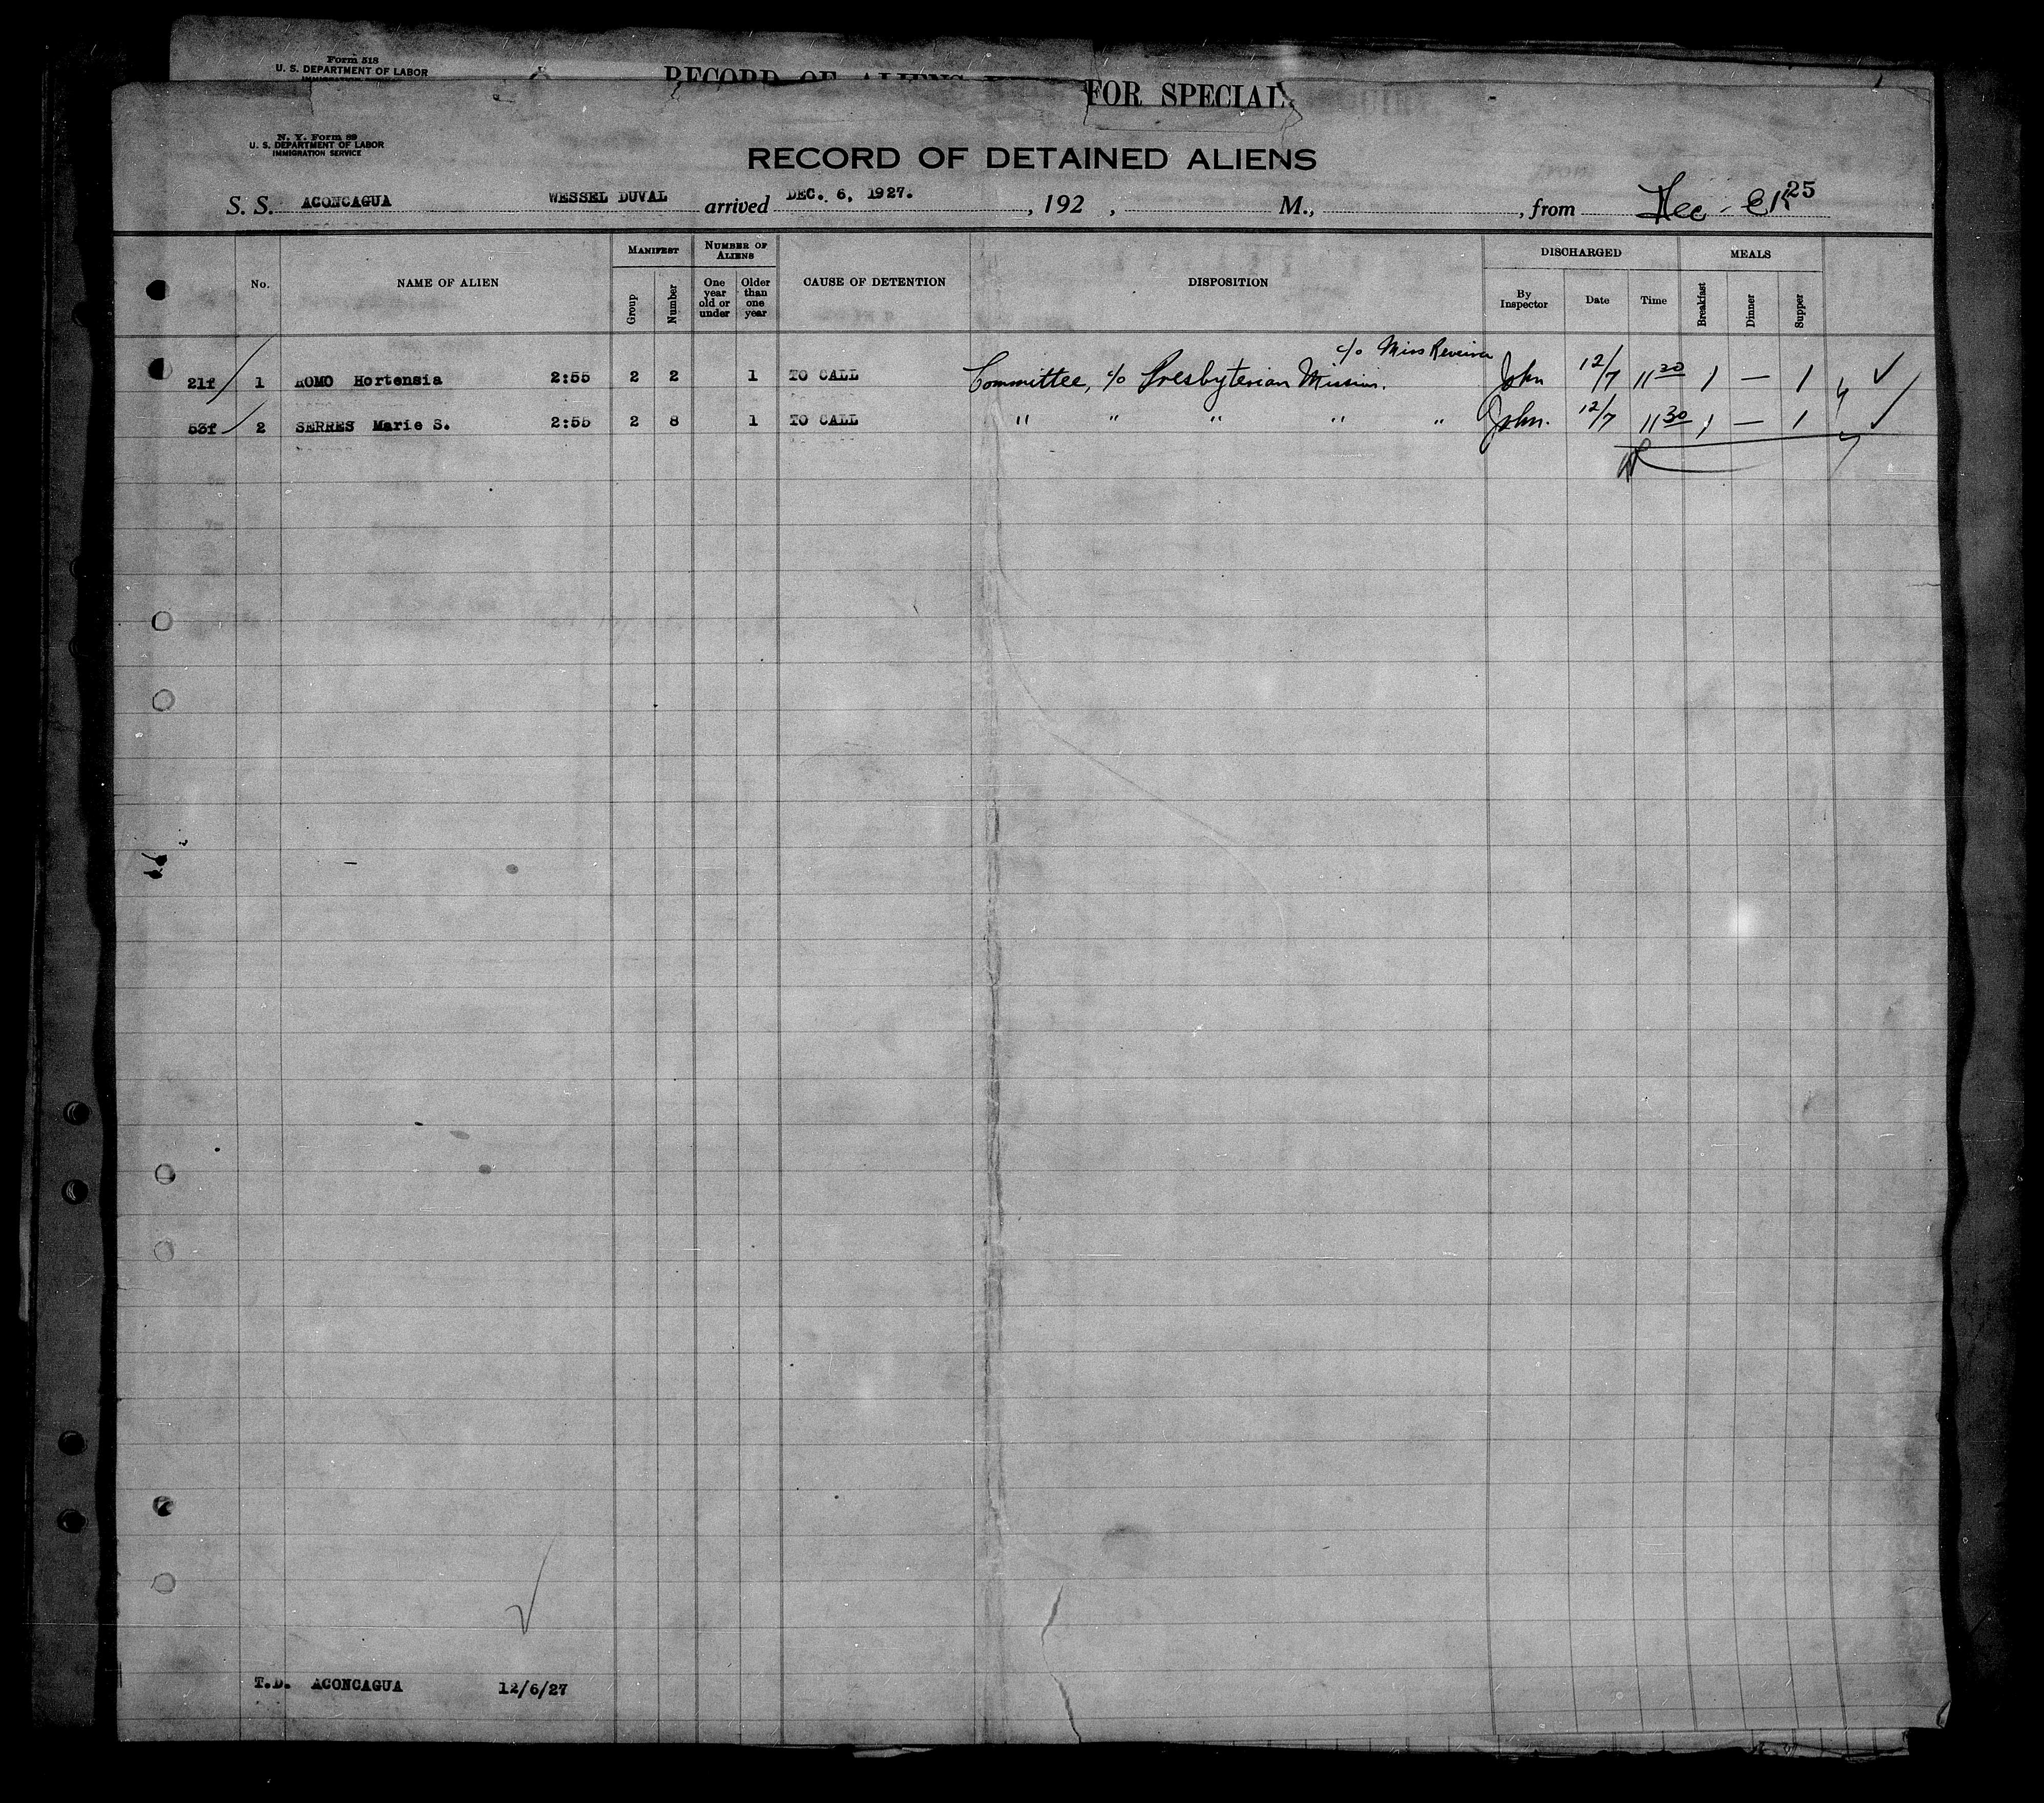 Form 518
U. S. DEPARTMENT OF LABOR
RECORD OF ALIENS
FOR SPECIAL
N. Y. Form 89
U. S. DEPARTMENT OF LABOR
IMMIGRATION SERVICE
RECORD OF DETAINED ALIENS
S. S. ACONCAGUA WESSEL DUVAL arrived DEC. 6, 1927. , 192 , M., , from 25
No. NAME OF ALIEN MANIFEST Group Number NUMBER OF ALIENS One year old or under Older than one year CAUSE OF DETENTION DISPOSITION DISCHARGED By Inspector Date Time MEALS Breakfast Dinner Supper
c/o Miss
21f 1 ROMO Hortensia 2:55 2 2 1 TO CALL Committee, c/o Presbyterian Mission. John 12/7 11 20 1 — 1
53f 2 SERRES Marie S. 2:55 2 8 1 TO CALL " " " " " John. 12/7 11 30 1 — 1
T.D. ACONCAGUA 12/6/27